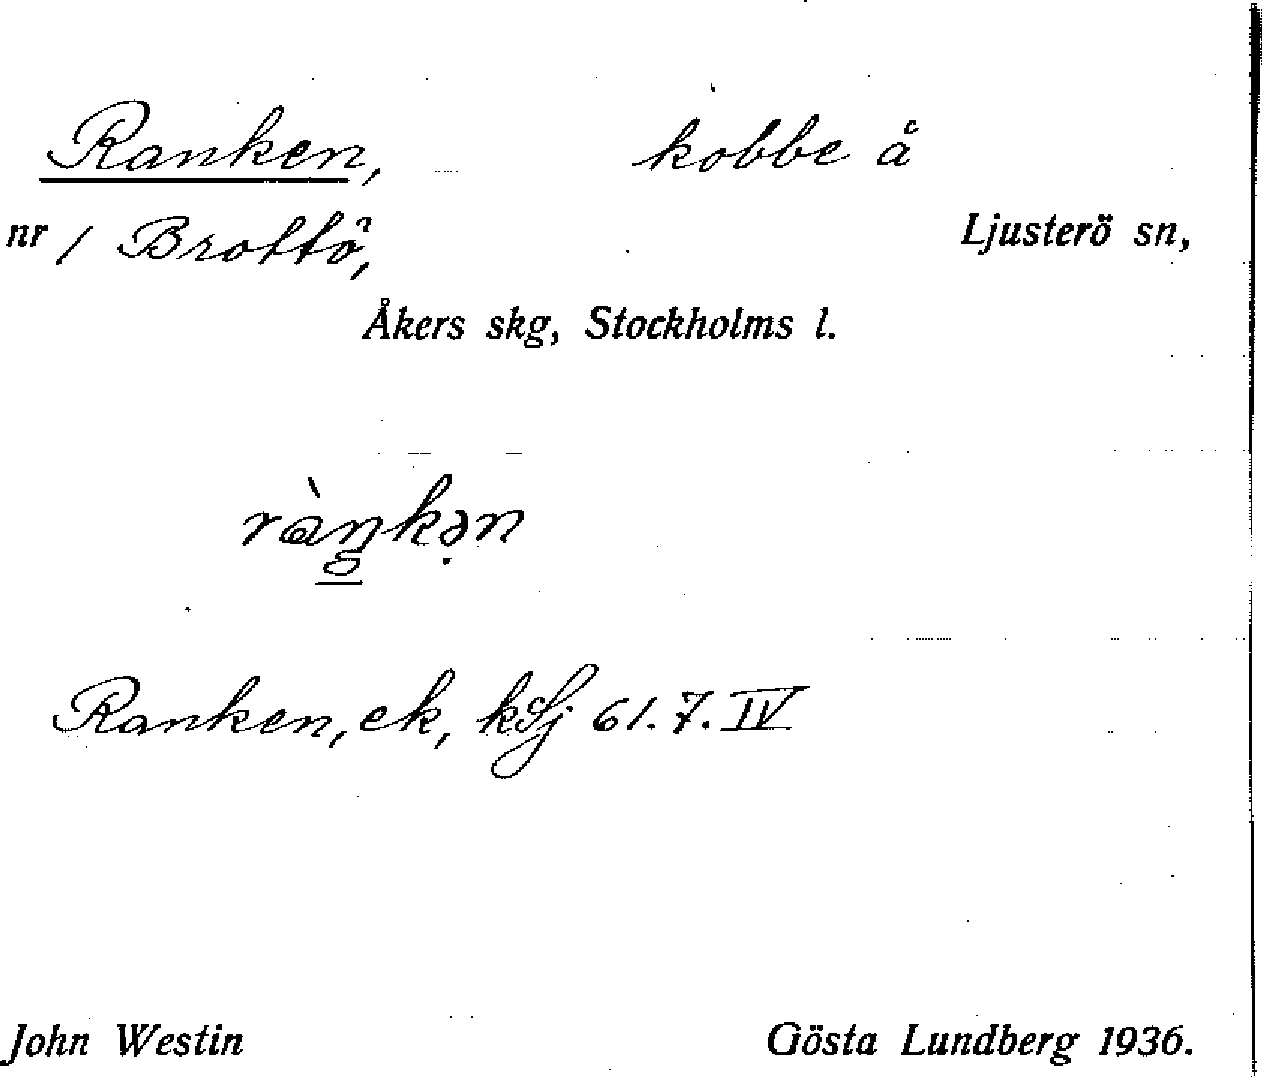 Ranken, kobbe å
nr 1 Brottö, Ljusterö sn,
Åkers skg, Stockholms l.
ràŋkə̣n
Ranken, ek, kSj 61.7.IV
John Westin Gösta Lundberg 1936.